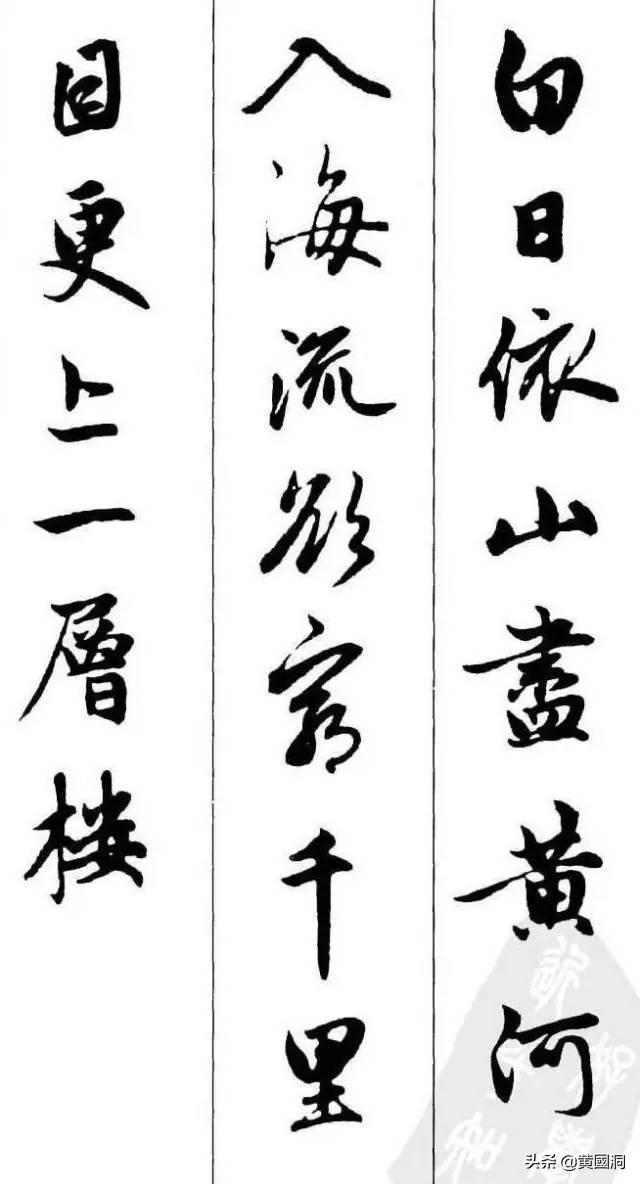 白日依山盡黄河
入海流欲窮千里
目更上一層楼
头条 @黄國洞